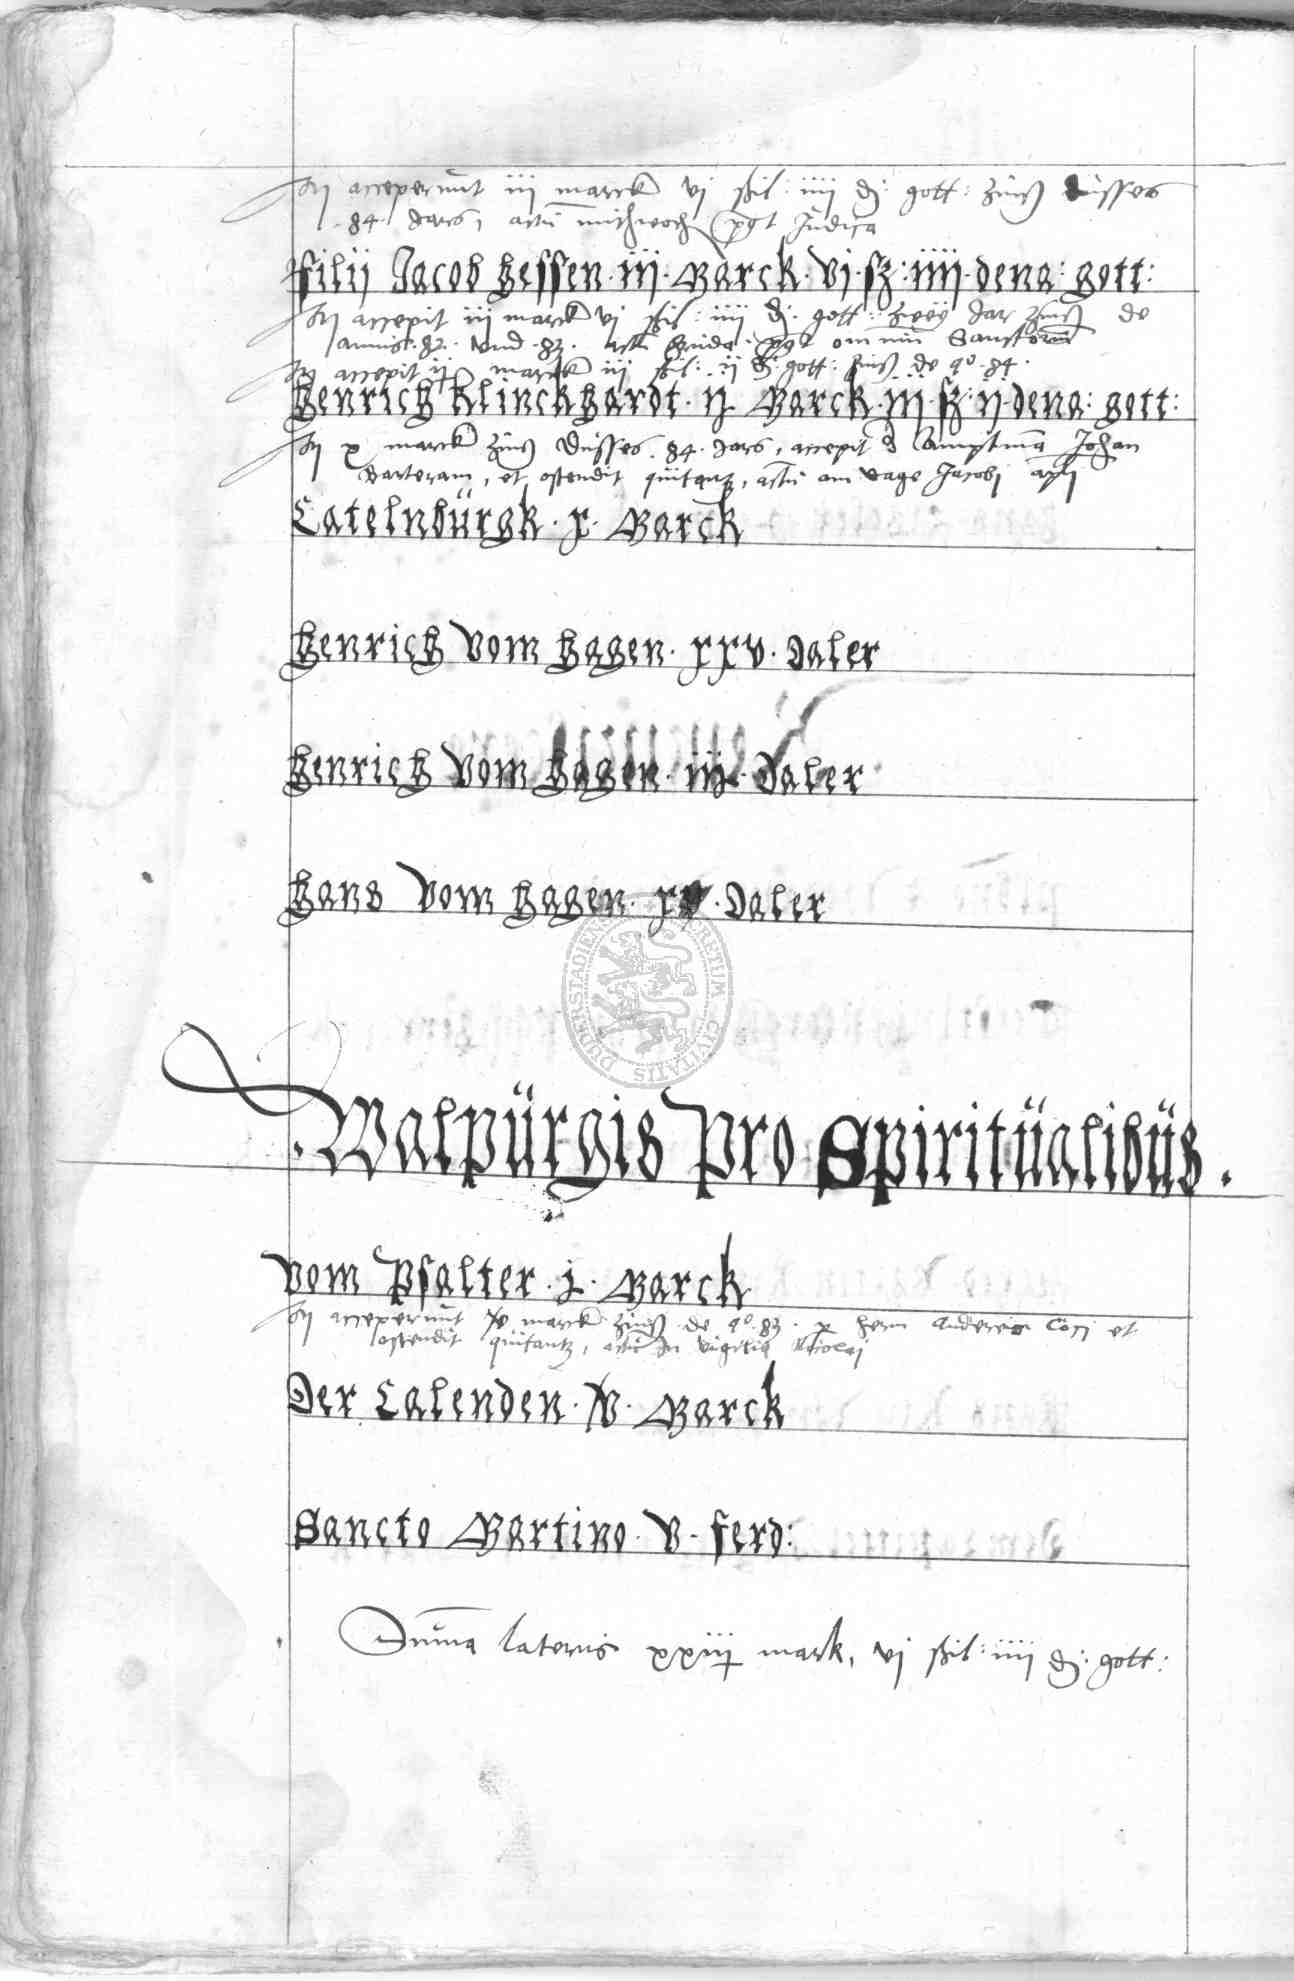 accepernt iii marck vj ßil: iiii d: gott: zinß dusses
84 Jars, actū mithwoch post Judica
filij Jacob hessen · iii · Marck · vj · sz : iiii · dena: gott:
accepit iii marck vj ßil: iiii d: gott: zwey Jar zinß de
annis · 82 · vnd · 83 · omnium Sanctorum
accepit ij marck iii ßil: ij d: gott: zinß de a° · 84 ·
Henrich Klinckhardt · ij · Marck · iii · sz : ij dena: gott:
x marck zinß dusses · 84 · Jars, accepit d Amptmā Johan
Barteram, et ostendit quitantz, actū am tage Jacobj apli
Catelnbürgk · x · Marck
Henrich vom Hagen · xxv · Daler
Henrich vom Hagen · iij · Daler
Hans vom Hagen · xv · Daler
DUDERSTADIENS SECRETUM CIVITATIS
· Walpürgis pro Spiritüalibüs ·
Vom Psalter · j · Marck
acceperūt v marck zinß de a° · 83 · p hern Andereas et
ostendit quitantz, actū In vigilia Nicolaj
Der Calenden · v · Marck
Sancto Martino · v · ferd:
Sūma lateris xxiij mark, vj ßil: iiii d: gott: